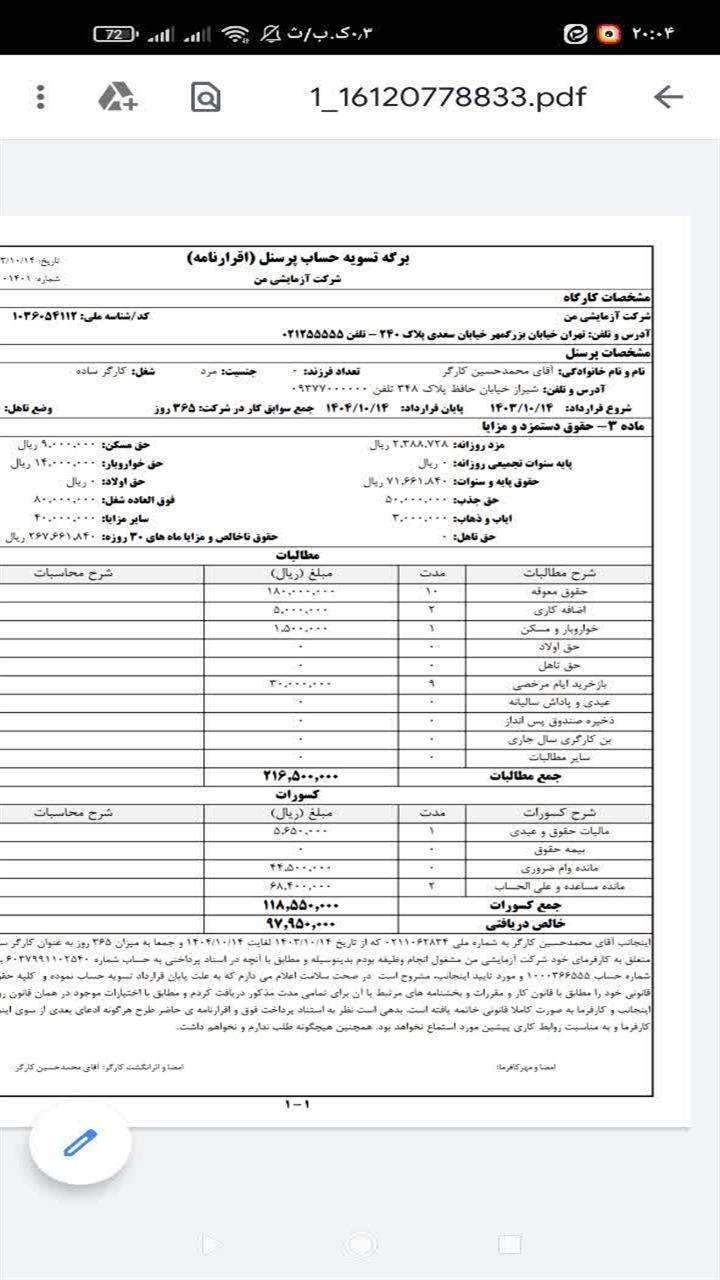 ۲۰:۰۴ ۰٫۳ک.ب/ث 72
1_16120778833.pdf
برگه تسویه حساب پرسنل (اقرارنامه)
تاریخ: ۳/۱۰/۱۴
شرکت آزمایشی من
شماره: ۰۱۴۰۱
مشخصات کارگاه
شرکت آزمایشی من کد/شناسه ملی: ۱۰۳۶۰۵۴۱۱۲
آدرس و تلفن: تهران خیابان بزرگمهر خیابان سعدی پلاک ۲۴۰ – تلفن ۰۲۱۲۵۵۵۵۵
مشخصات پرسنل
نام و نام خانوادگی: آقای محمدحسین کارگر تعداد فرزند: ۰ جنسیت: مرد شغل: کارگر ساده
آدرس و تلفن: شیراز خیابان حافظ پلاک ۳۴۸ تلفن ۰۹۳۷۷۰۰۰۰۰۰
شروع قرارداد: ۱۴۰۳/۱۰/۱۴ پایان قرارداد: ۱۴۰۴/۱۰/۱۴ جمع سوابق کار در شرکت: ۳۶۵ روز وضع تاهل:
ماده ۳– حقوق دستمزد و مزایا
مزد روزانه: ۲,۳۸۸,۷۲۸ ریال حق مسکن: ۹,۰۰۰,۰۰۰ ریال
پایه سنوات تجمیعی روزانه: ۰ ریال حق خواروبار: ۱۴,۰۰۰,۰۰۰ ریال
حقوق پایه و سنوات: ۷۱,۶۶۱,۸۴۰ ریال حق اولاد: ۰ ریال
حق جذب: ۵۰,۰۰۰,۰۰۰ فوق العاده شغل: ۸۰,۰۰۰,۰۰۰
ایاب و ذهاب: ۳,۰۰۰,۰۰۰ سایر مزایا: ۴۰,۰۰۰,۰۰۰
حق تاهل: ۰ حقوق ناخالص و مزایا ماه های ۳۰ روزه: ۲۶۷,۶۶۱,۸۴۰ ریال
مطالبات
شرح مطالبات مدت مبلغ (ریال) شرح محاسبات
حقوق معوقه ۱۰ ۱۸۰,۰۰۰,۰۰۰
اضافه کاری ۲ ۵,۰۰۰,۰۰۰
خواروبار و مسکن ۱ ۱,۵۰۰,۰۰۰
حق اولاد ۰ ۰
حق تاهل ۰ ۰
بازخرید ایام مرخصی ۹ ۳۰,۰۰۰,۰۰۰
عیدی و پاداش سالیانه ۰ ۰
ذخیره صندوق پس انداز ۰ ۰
بن کارگری سال جاری ۰ ۰
سایر مطالبات ۰ ۰
جمع مطالبات ۲۱۶,۵۰۰,۰۰۰
کسورات
شرح کسورات مدت مبلغ (ریال) شرح محاسبات
مالیات حقوق و عیدی ۱ ۵,۶۵۰,۰۰۰
بیمه حقوق ۰ ۰
مانده وام ضروری ۰ ۴۴,۵۰۰,۰۰۰
مانده مساعده و علی الحساب ۲ ۶۸,۴۰۰,۰۰۰
جمع کسورات ۱۱۸,۵۵۰,۰۰۰
خالص دریافتی ۹۷,۹۵۰,۰۰۰
اینجانب آقای محمدحسین کارگر به شماره ملی ۰۲۱۱۰۶۲۸۳۴ که از تاریخ ۱۴۰۳/۱۰/۱۴ لغایت ۱۴۰۴/۱۰/۱۴ و جمعا به میزان ۳۶۵ روز به عنوان کارگر
متعلق به کارفرمای خود شرکت آزمایشی من مشغول انجام وظیفه بودم بدینوسیله و مطابق با آنچه در اسناد پرداختی به حساب شماره ۶۰۳۷۹۹۱۱۰۲۵۴۰
شماره حساب ۱۰۰۰۳۶۶۵۵۵ و مورد تایید اینجانب، مشروح است در صحت سلامت اعلام می دارم که به علت پایان قرارداد تسویه حساب نموده و کلیه
قانونی خود را مطابق با قانون کار و مقررات و بخشنامه های مرتبط با آن برای تمامی مدت مذکور دریافت کردم و مطابق با اختیارات موجود در همان قانون
اینجانب و کارفرما به صورت کاملا قانونی خاتمه یافته است. بدهی است نظر به استناد پرداخت فوق و اقرارنامه ی حاضر طرح هرگونه ادعای بعدی از سوی
کارفرما و به مناسبت روابط کاری پیشین مورد استماع نخواهد بود. همچنین هیچگونه طلب ندارم و نخواهم داشت.
امضا و مهرکارفرما: امضا و اثرانگشت کارگر: آقای محمدحسین کارگر
۱–۱